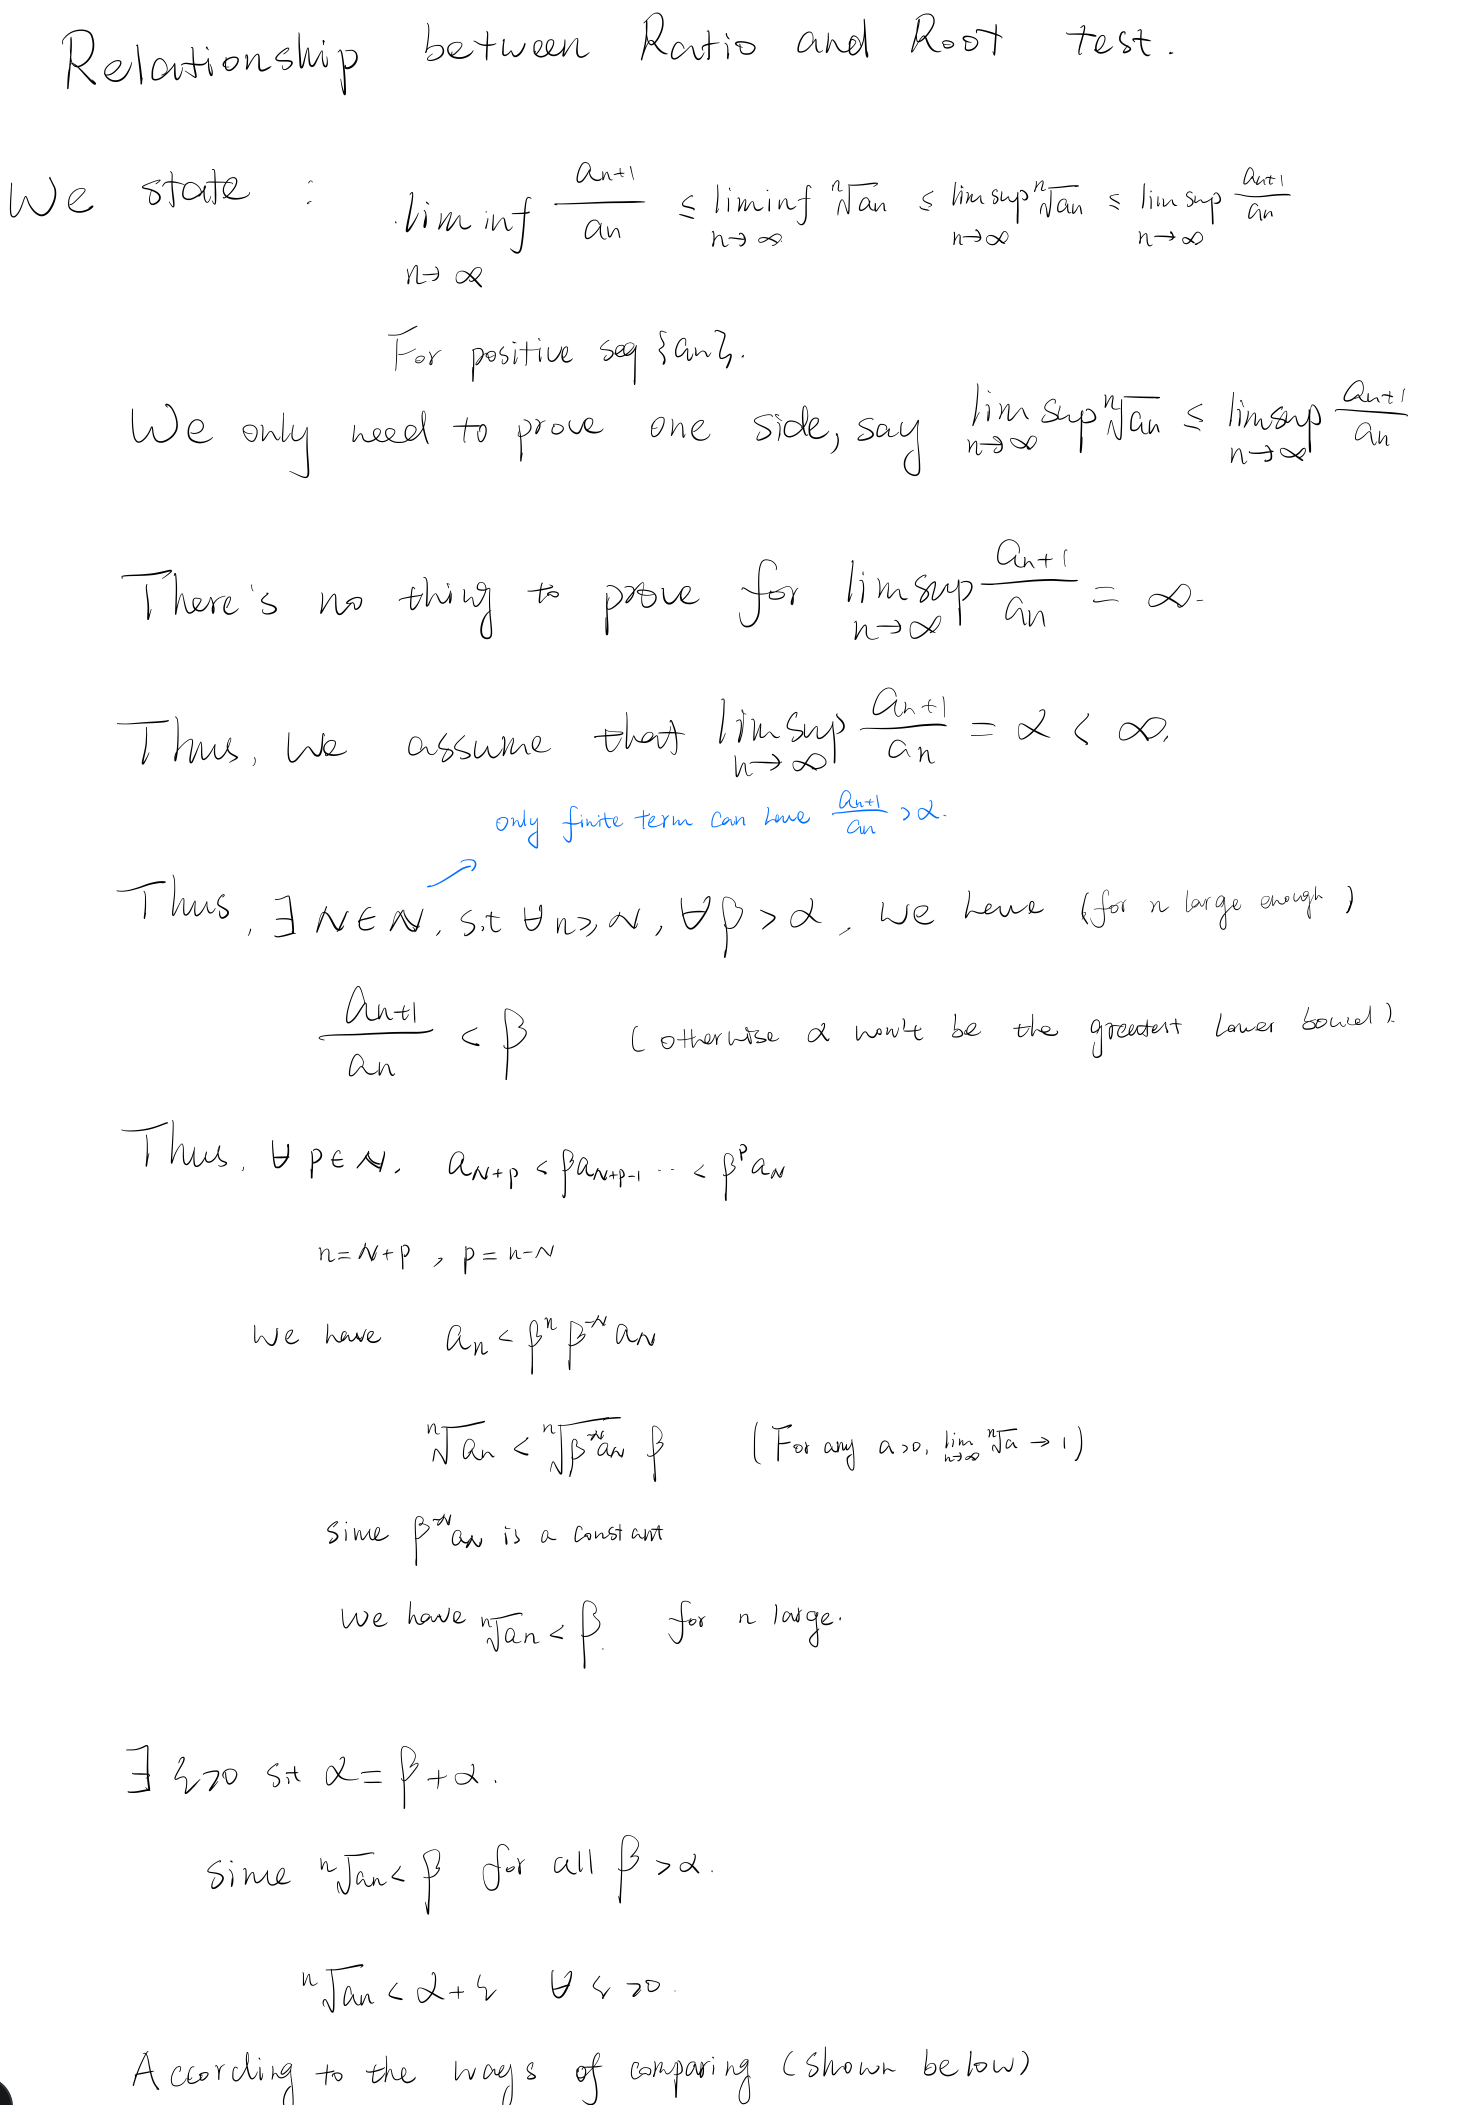 Relationship between Ratio and Root test.
We state : lim inf_{n→∞} a_{n+1}/a_n ≤ liminf_{n→∞} ⁿ√a_n ≤ limsup_{n→∞} ⁿ√a_n ≤ limsup_{n→∞} a_{n+1}/a_n
For positive seq {a_n}.
We only need to prove one side, say limsup_{n→∞} ⁿ√a_n ≤ limsup_{n→∞} a_{n+1}/a_n
There's no thing to prove for limsup_{n→∞} a_{n+1}/a_n = ∞.
Thus, we assume that limsup_{n→∞} a_{n+1}/a_n = α < ∞.
only finite term can have a_{n+1}/a_n > α.
Thus, ∃ N ∈ ℕ, s.t ∀ n ≥ N, ∀ β > α, we have (for n large enough)
a_{n+1}/a_n < β (otherwise α won't be the greatest lower bound).
Thus, ∀ p ∈ ℕ, a_{N+p} < βa_{N+p-1} ·· < β^p a_N
n = N+p , p = n-N
We have a_n < β^n β^{-N} a_N
ⁿ√a_n < ⁿ√(β^{-N} a_N) β (For any a>0, lim_{n→∞} ⁿ√a → 1)
Since β^{-N} a_N is a constant
We have ⁿ√a_n < β for n large.
∃ ξ>0 s.t α = β + α.
Since ⁿ√a_n < β for all β > α.
ⁿ√a_n < α + ξ ∀ ξ >0.
According to the ways of comparing (shown below)